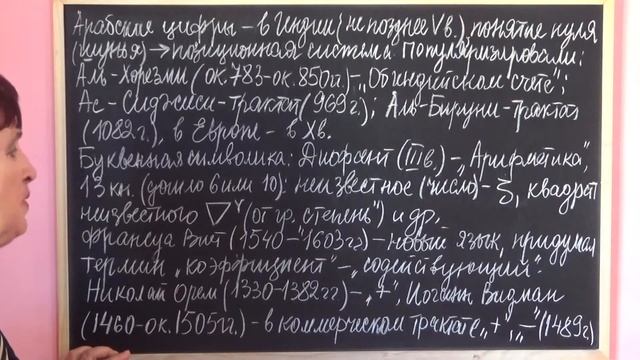 Арабские цифры – в Индии (не позднее V в.), понятие нуля
(шунья) → позиционная система. Популяризировали:
Аль-Хорезми (ок. 783-ок. 850г.) – „Об индийском счёте";
Ас-Сиджизи-трактат (969г.); Аль-Бируни-трактат
(1082г.), в Европе – в X в.
Буквенная символика: Диофант (III в.) – „Арифметика",
13 кн. (дошло 6 или 10): неизвестное (число) – ξ, квадрат
неизвестного ▽ʸ (от гр. „степень") и др.
Франсуа Виет (1540 – 1603 гг.) – новый язык, придумал
термин „коэффициент" – „содействующий".
Николай Орем (1330-1382 гг) – „+", Иоганн Видман
(1460-ок. 1505гг.) – в коммерческом трактате „+", „–" (1489г.)